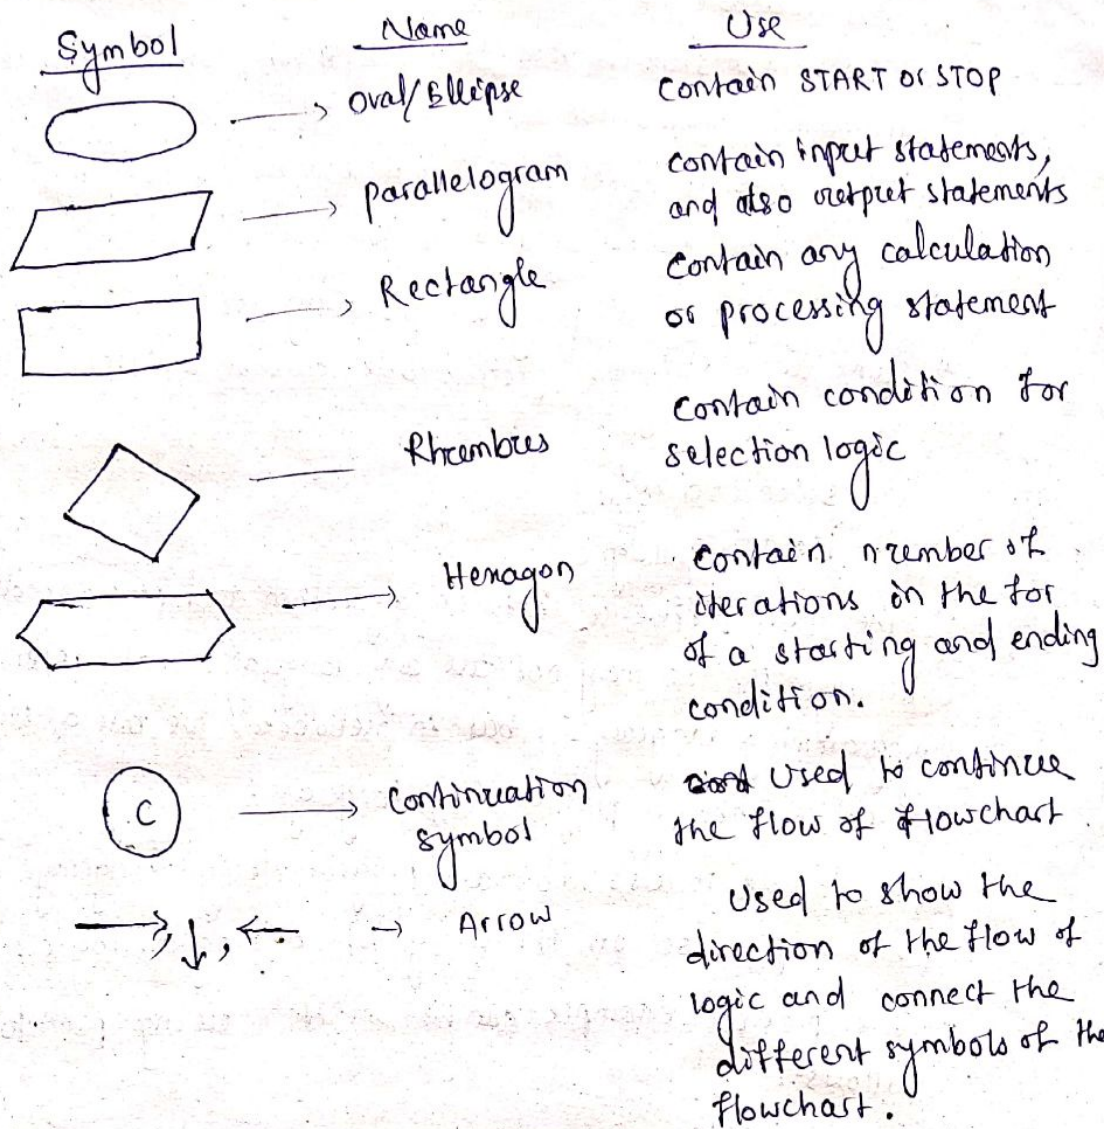 Symbol Name Use
Oval/Ellipse Contain START or STOP
Parallelogram contain input statements,
and also output statements
Rectangle Contain any calculation
or processing statement
Rhombus Contain condition for
selection logic
Hexagon Contain number of
iterations in the for
of a starting and ending
condition.
C Continuation Used to continue
symbol the flow of flowchart
Arrow Used to show the
direction of the flow of
logic and connect the
different symbols of the
flowchart.